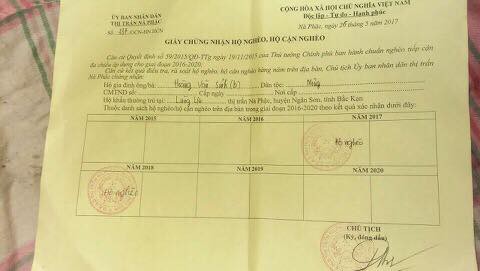 ỦY BAN NHÂN DÂN
THỊ TRẤN NÀ PHẶC
CỘNG HÒA XÃ HỘI CHỦ NGHĨA VIỆT NAM
Độc lập - Tự do - Hạnh phúc
Nà Phặc, ngày 26 tháng 5 năm 2017
GIẤY CHỨNG NHẬN HỘ NGHÈO, HỘ CẬN NGHÈO
Căn cứ Quyết định số 59/2015/QĐ-TTg ngày 19/11/2015 của Thủ tướng Chính phủ ban hành chuẩn nghèo tiếp cận
đa chiều áp dụng cho giai đoạn 2016-2020.
Căn cứ kết quả điều tra, rà soát hộ nghèo, hộ cận nghèo hàng năm trên địa bàn, Chủ tịch Ủy ban nhân dân thị trấn
Nà Phặc chứng nhận:
Hộ gia đình ông/bà: Hoàng Văn Sinh (b) Dân tộc: Nùng
CMTND số: Cấp ngày Nơi cấp
Hộ khẩu thường trú tại: thị trấn Nà Phặc, huyện Ngân Sơn, tỉnh Bắc Kạn
Thuộc danh sách hộ nghèo/hộ cận nghèo trên địa bàn trong giai đoạn 2016-2020 theo kết quả xác nhận dưới đây:
NĂM 2015 NĂM 2016 NĂM 2017
Hộ nghèo
NĂM 2018 NĂM 2019 NĂM 2020
Hộ nghèo
CHỦ TỊCH
(Ký, đóng dấu)